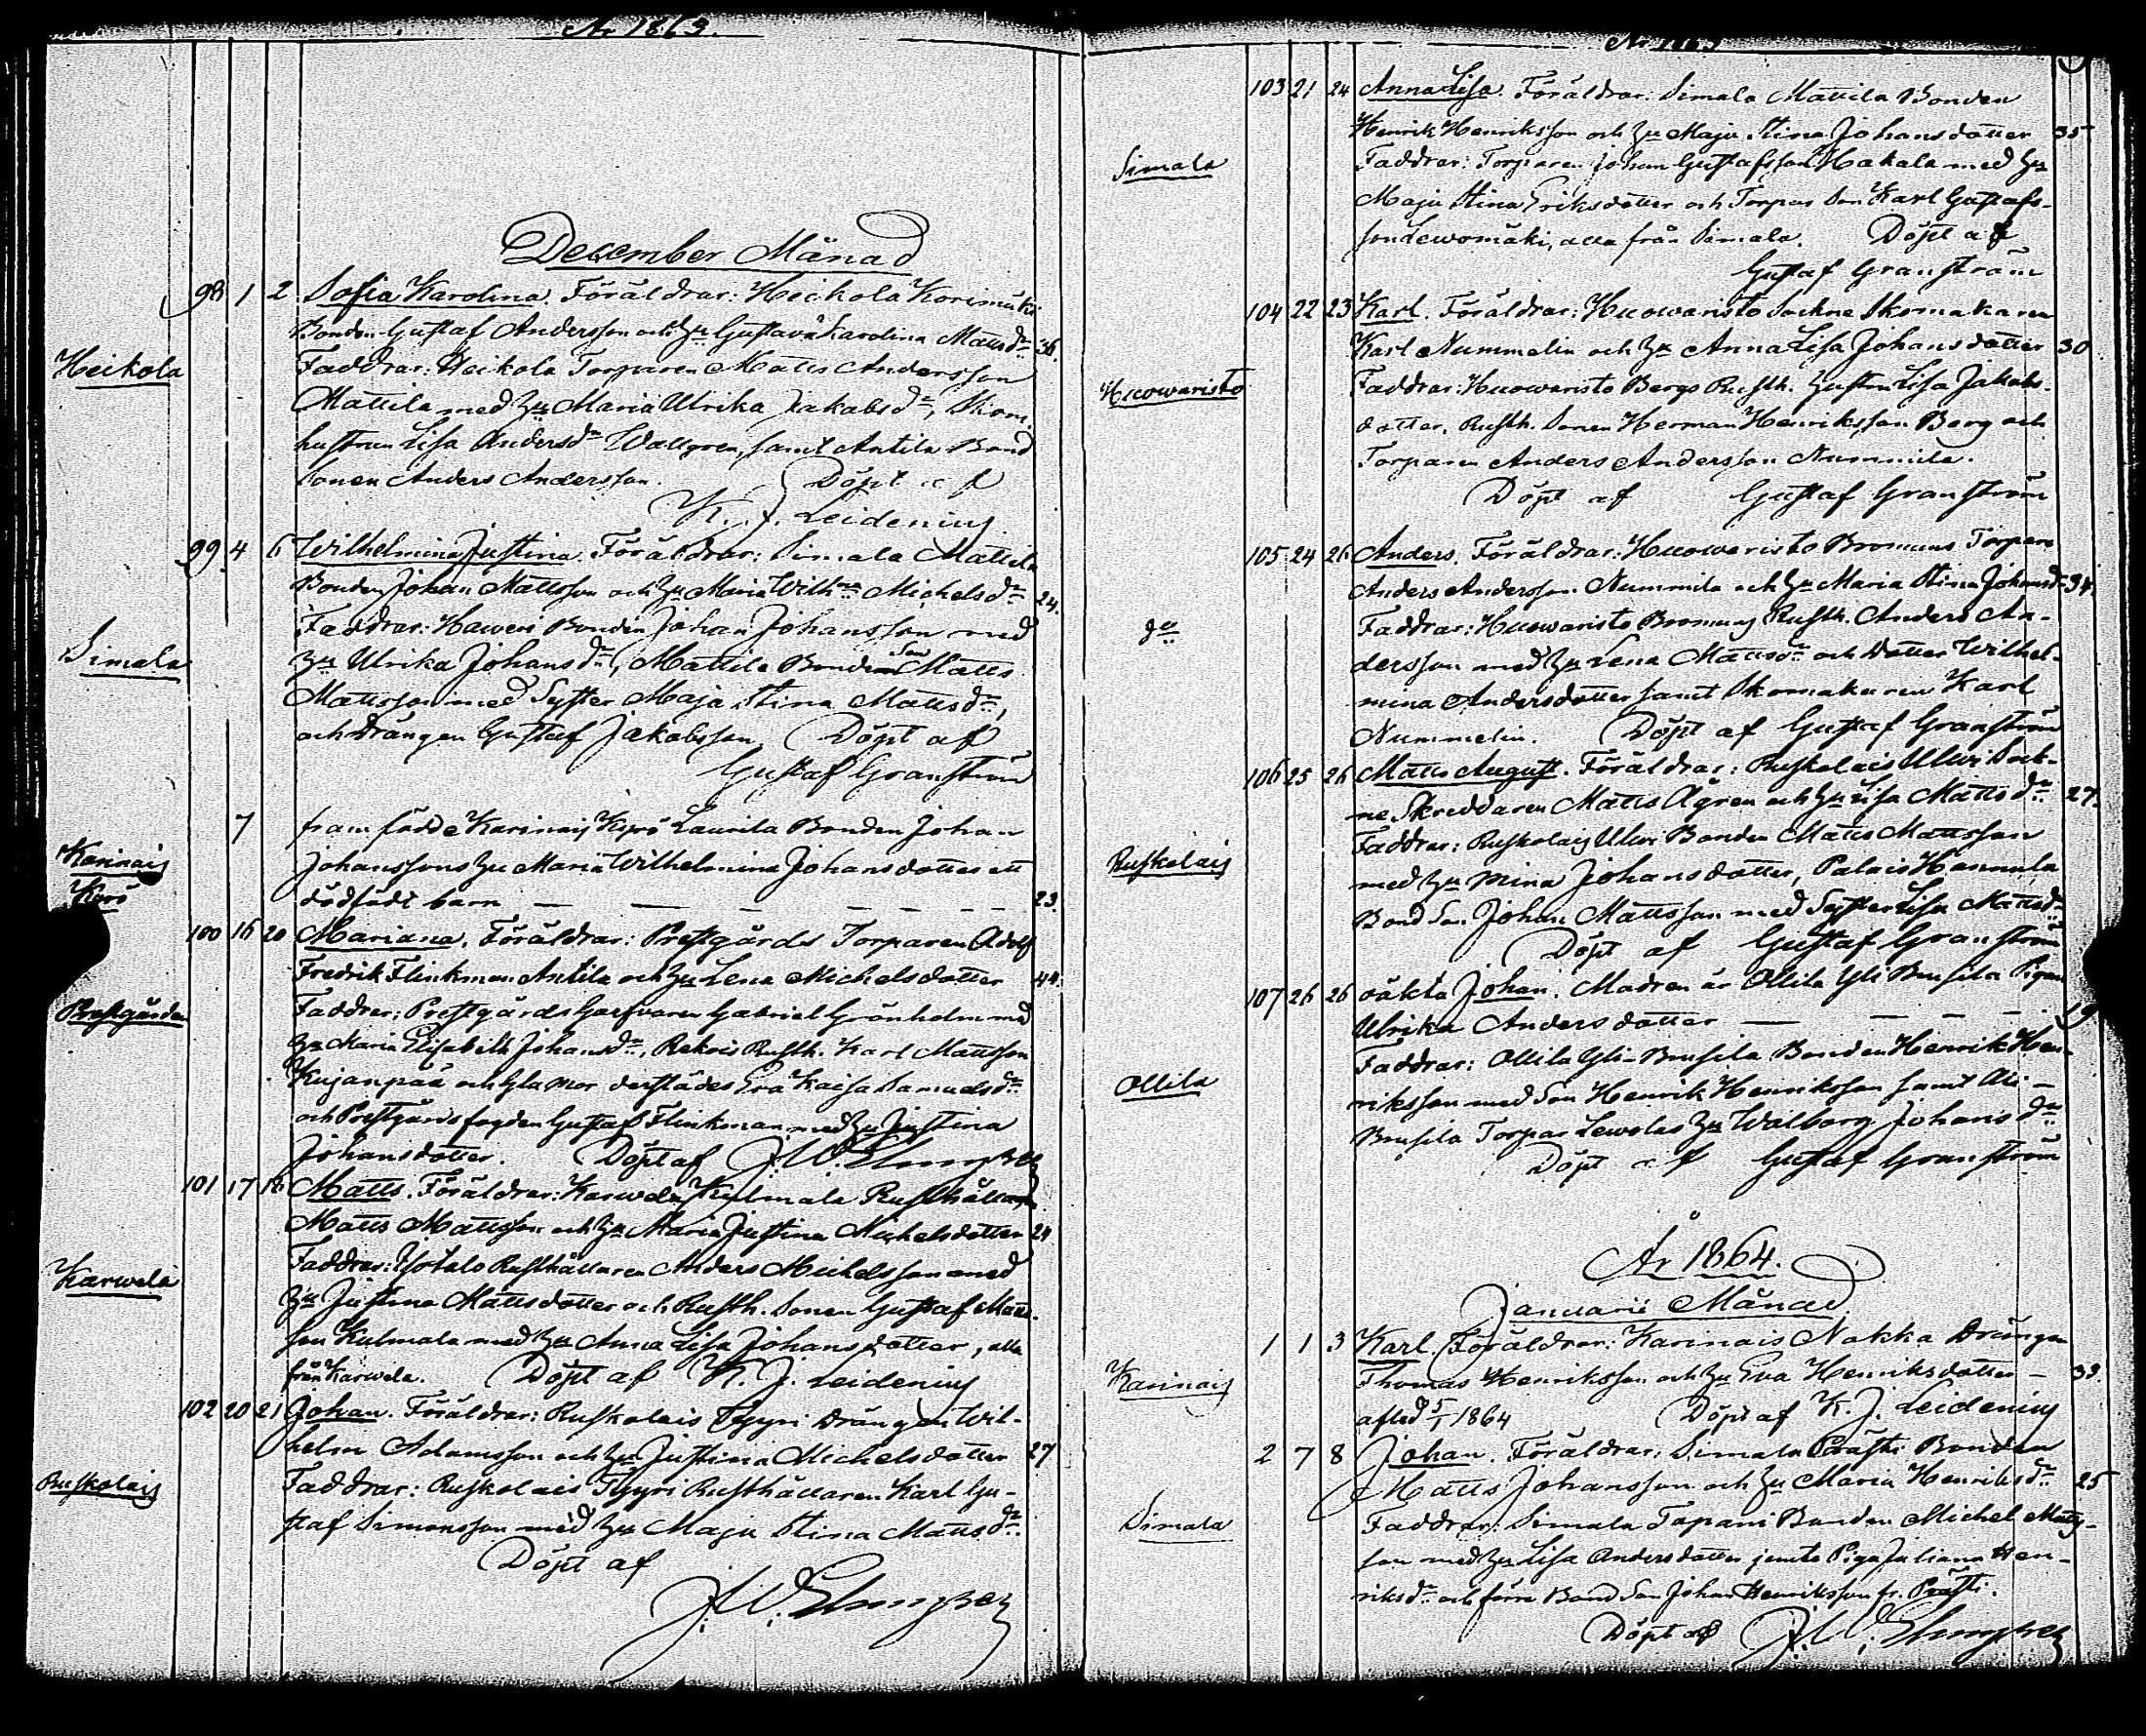 År 1863.
December Månad
98 1 2 Sofia Karolina. Föräldrar: Heikola Korimäki
Bonden Gustaf Andersson och Hu Gustava Karolina Mattsdr 36.
Heikola
Faddrar: Heikola Torparen Matts Andersson
Mattila med Hu Maria Ulrika Jakabsdr, Skom.
hustrun Lisa Andersdr Wallgren, samt Antila Bond
Sonen Anders Andersson. Döpt af
K. J. Leidenius
99. 4 6 Wilhelmina Justina. Föräldrar: Simala Mattila
Bonden Johan Mattsson och Hu Maria Wilhna Michelsdr 24.
Faddrar: Haweri Bonden Johan Johansson med
Simala
Hu Ulrika Johansdr, Mattila Bonden Son Matts
Mattsson med Syster Maja Stina Mattsdr,
och Drängen Gustaf Jakobsson Döpt af
Gustaf Granström
7 framfödde Karinais Kyrö Laurila Bonden Johan
Karinais
Kyrö
Johanssons Hu Maria Wilhelmina Johansdotter ett
dödfödt barn — — — — — — 23.
100 16 20 Mariana. Föräldrar: Prestgårds Torparen Adolf
Fredrik Flinkman Antila och Hu Lena Michelsdotter 44.
Prestgården
Faddrar: Prestgårds Garfvaren Gabriel Grönholm med
Hu Maria Elisabeth Johansdr, Rekois Rusth. Karl Mattsson
Kujanpää och Gla Mor derstädes Eva Kaisa Samuelsdr
och Prestgårds fogden Gustaf Flinkman med Hu Justina
Johansdotter. Döpt af
101 17 18 Matts. Föräldrar: Karwela Kulmala Rusthållaren
Matts Mattsson och Hu Maria Justina Michelsdotter 24
Karwela
Faddrar: Yotalo Rusthållaren Anders Michelsson med
Hu Justina Mattsdotter och Rusth. Sonen Gustaf Matts-
son Kulmala med Hu Anna Lisa Johansdotter, alla
från Karwela. Döpt af K. J. Leidenius
102 20 21 Johan. Föräldrar: Ruskolais Tyyri Drängen Wil-
helm Adamsson och Hu Justina Michelsdotter 27
Ruskolais
Faddrar: Ruskolais Tyyri Rusthållaren Karl Gu-
staf Simonsson med Hu Maja Stina Mattsdr.
Döpt af
År 1863
103 21 24 Anna Lisa. Föräldrar: Simala Mattila Bonden
Henrik Henriksson och Hu Maja Stina Johansdotter 35
Simala
Faddrar: Torparen Johan Gustafsson Hakala med Hu
Maja Stina Eriksdotter och Torpar Son Karl Gustafs-
son Lewomäki, alla från Simala. Döpt af
Gustaf Granström
104 22 23 Karl. Föräldrar: Huowaristo Sockne Skomakaren
Karl Nummelin och Hu Anna Lisa Johansdotter 30
Huowaristo
Faddrar: Huowaristo Bergs Rusth. hustru Lisa Jakabs-
dotter, Rusth. Sonen Herman Henriksson Berg och
Torparen Anders Andersson Nummila.
Döpt af Gustaf Granström
105 24 26 Anders. Föräldrar: Huowaristo Bromuns Torparen
Anders Andersson Nummila och Hu Maria Stina Johansdr 34.
Faddrar: Huowaristo Bromus Rusth. Anders An-
dersson med Hu Lena Mattsdr och Dotter Wilhel-
mina Andersdotter samt Skomakaren Karl
Nummelin. Döpt af Gustaf Granström
106 25 26 Matts August. Föräldrar: Ruskolais Ulwi Sock-
ne Skreddaren Matts Ågren och Hu Lisa Mattsdr 27.
Ruskolais
Faddrar: Ruskolais Ulwi Bonden Matts Mattsson
med Hu Mina Johansdotter, Palais Hannula
Bond Son Johan Mattsson med Syster Lisa Mattsdr
Döpt af Gustaf Granström
107 26 26 oäkta Johan. Modren är Ollila Yli Brusila Pigan
Ulrika Andersdotter — — — — 19
Faddrar: Ollila Yli-Brusila Bonden Henrik Hen-
Ollila
riksson med Son Henrik Henriksson samt Ali-
Brusila Torpar Lewolas Hu Walborg Johansdr
Döpt af Gustaf Granström
År 1864.
Januarii Månad.
1 1 3 Karl. Föräldrar: Karinais Nakka Drängen
Karinais
Thomas Henriksson och Hu Eva Henriksdotter — 33.
afled 5/1 1864 Döpt af K. J. Leidenius
2 7 8 Johan. Föräldrar: Simala Prästi Bonden
Matts Johansson och Hu Maria Henriksdr 25
Simala
Faddrar: Simala Tapani Bonden Michel Matts-
son med Hu Lisa Andersdotter jemte Piga Juliana Hen-
riksdr och förra Bond Son Johan Henriksson fr. Prästi.
Döpt af